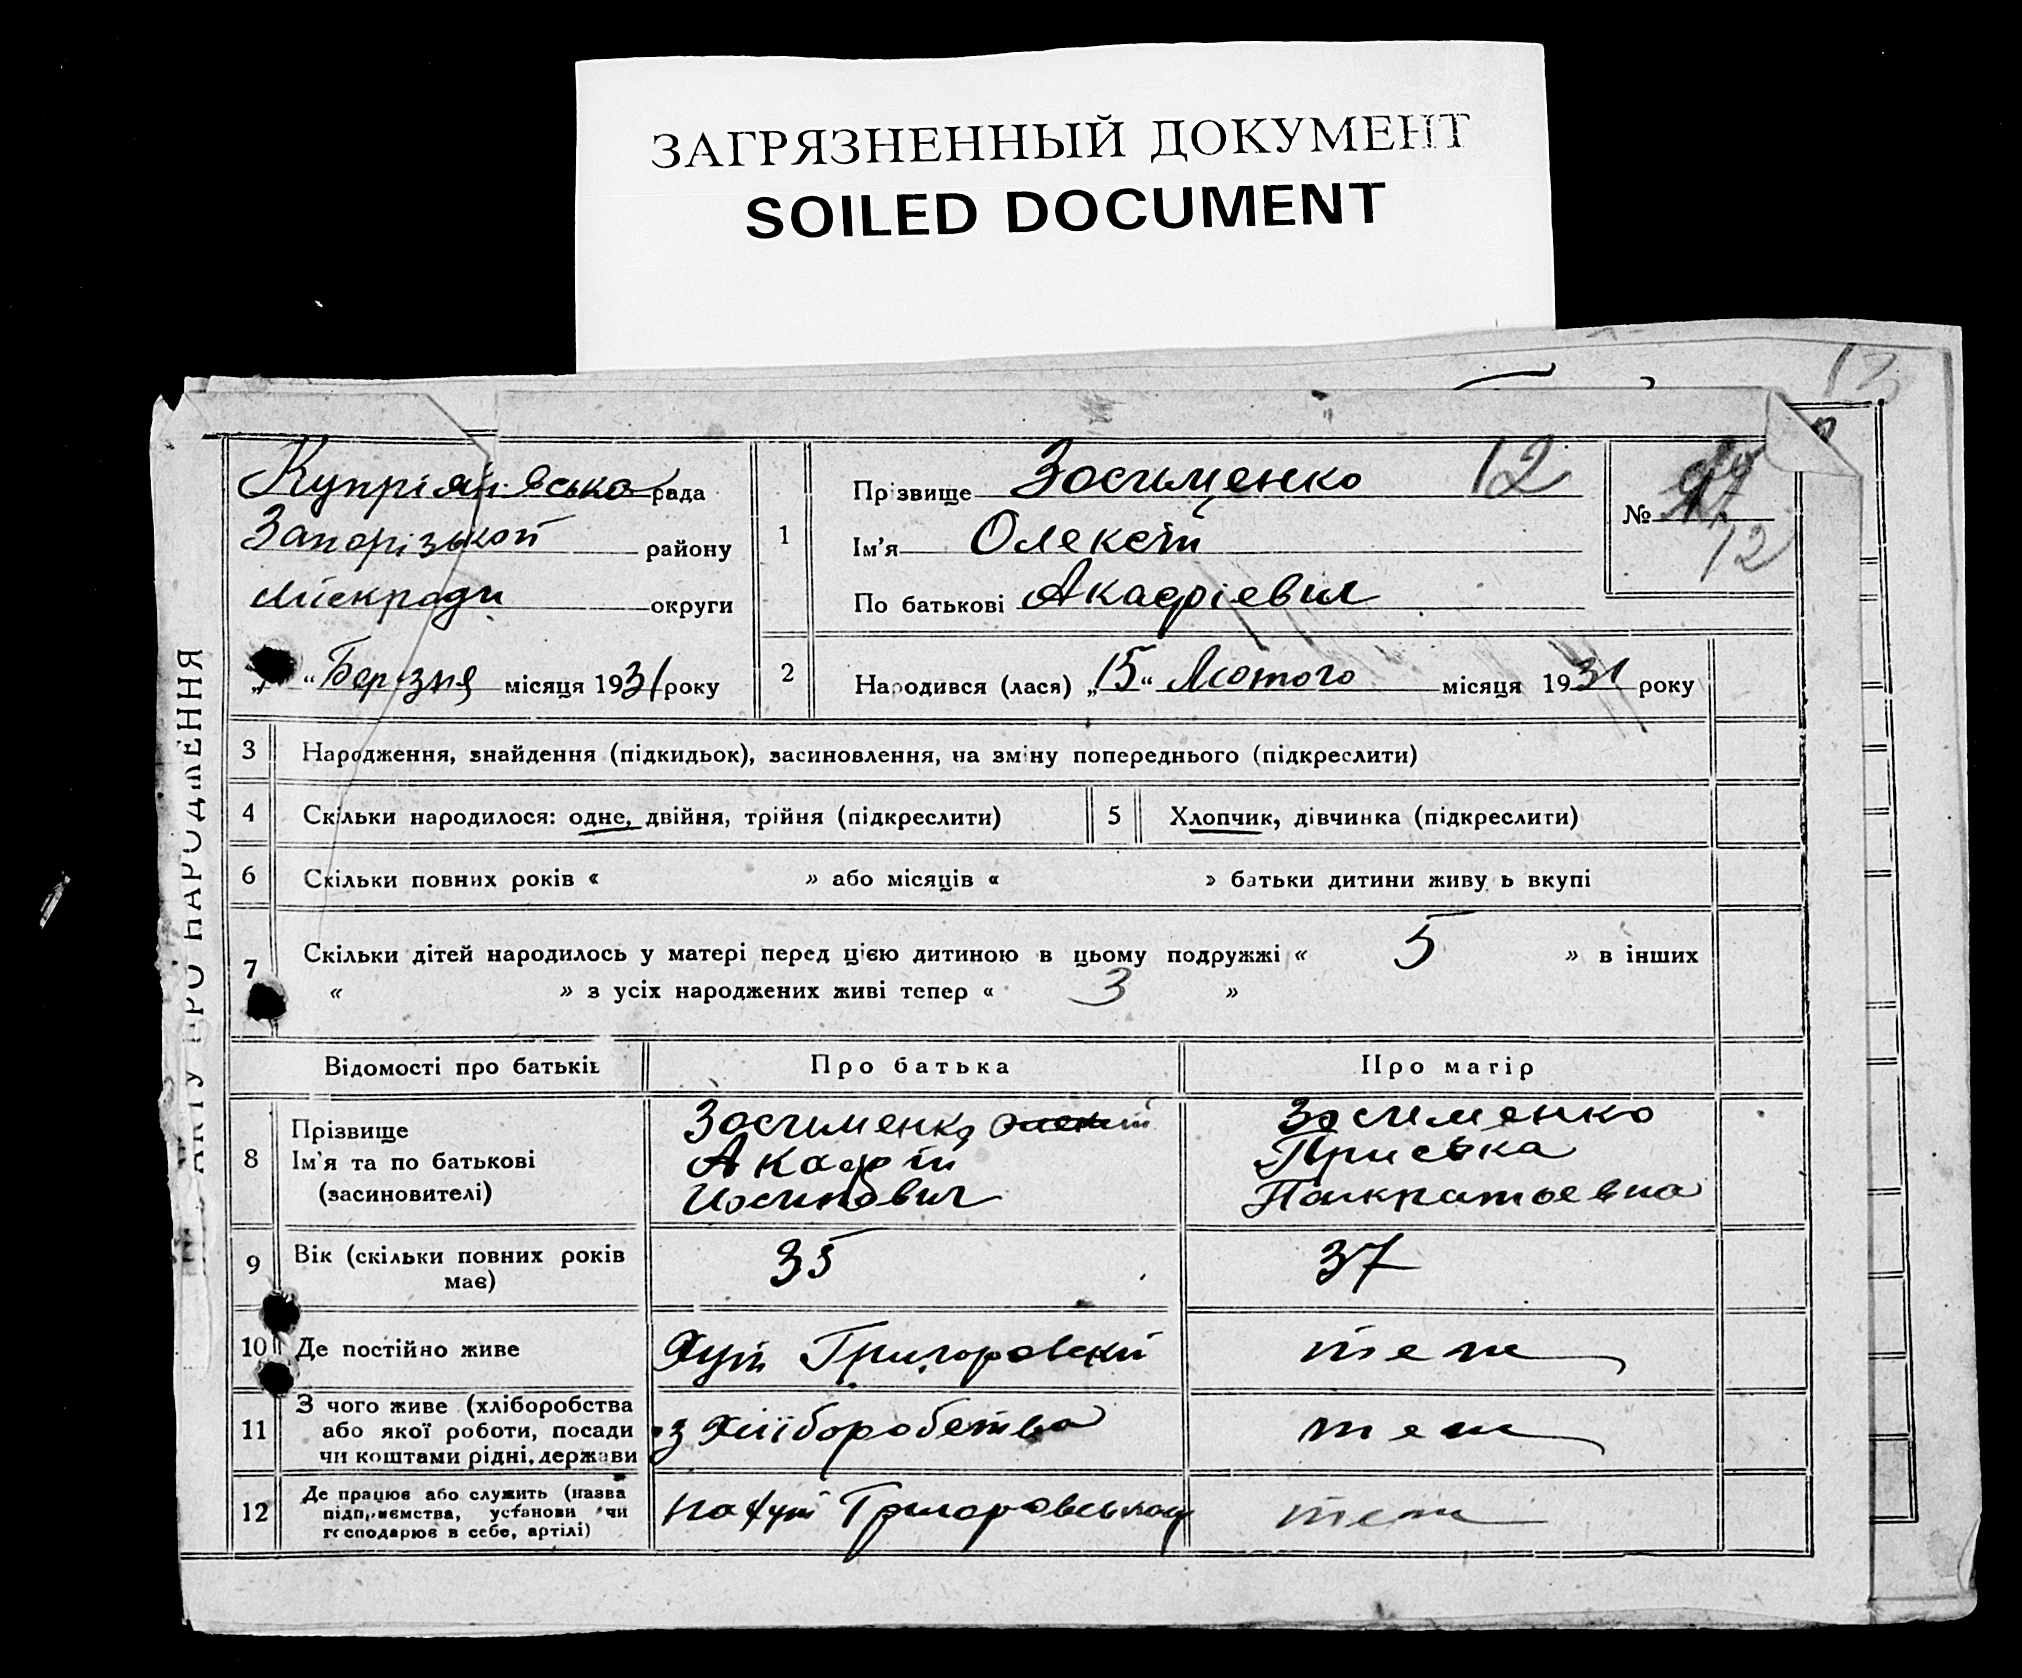 ЗАГРЯЗНЕННЫЙ ДОКУМЕНТ
SOILED DOCUMENT
13
АКТУ ПРО НАРОДЖЕННЯ
Купріянівська рада
Запорізької району
Міскради округи
“ Березня місяця 1931 року
1
Прізвище Зосименко 12
Ім'я Олексій
По батькові Акафієвич
№ 12
2
Народився (лася) „15“ Лютого місяця 1931 року
3 Народження, знайдення (підкидьок), засиновлення, на зміну попереднього (підкреслити)
4 Скільки народилося: одне, двійня, трійня (підкреслити)
5 Хлопчик, дівчинка (підкреслити)
6 Скільки повних років « » або місяців « » батьки дитини живу ь вкупі
7 Скільки дітей народилось у матері перед цією дитиною в цьому подружжі « 5 » в інших
« » з усіх народжених живі тепер « 3 »
Відомості про батьків Про батька Про матір
8 Прізвище
Ім'я та по батькові
(засиновителі)
Зосименко Олексій
Акафій
Иосипович
Зосименко
Приська
Панкратьевна
9 Вік (скільки повних років
має)
35 37
10 Де постійно живе Хут Григоровский теж
11 З чого живе (хліборобства
або якої роботи, посади
чи коштами рідні, держави
з хліборобства теж
12 Де працює або служить (назва
підприємства, установи чи
господарює в себе, артілі)
на хут теж